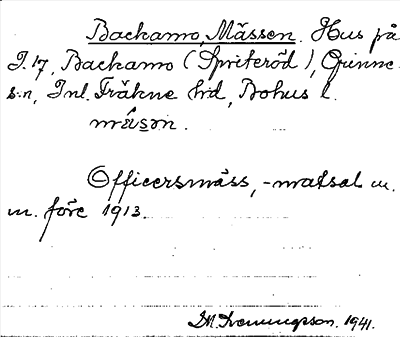 Backamo, Mässen. Hus på
I. 17, Backamo (Spriteröd), Grinne-
s:n, Inl. Fräkne hd, Bohus l.
Officersmäss, -matsal m.
m. före 1913.
1941.